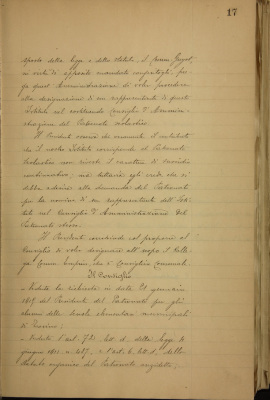 17
sposto della legge e dello statuto, il Comm. Gujot,
in veste di apposito mandato
quest'Amministrazione di voler provvedere
alla designazione di un rappresentante di questo
Istituto nel costituendo Consiglio d'Ammini-
strazione del Patronato scolastico
Il Presidente
che il nostro Istituto corrisponde al Patronato
Scolastico non riveste il carattere di
continuativo; ma tuttavia egli crede che si
debba aderire alla domanda del Patronato
per la nomina di un rappresentante dell'Isti-
tuto nel Consiglio d'Amministrazione del
Patronato stesso.
Il Presidente conchiude col proporre al
Consiglio di voler designare all'uopo il Colle-
ga Comm. Consigliere Comunale.
Il Consiglio
- Veduta la richiesta in data 21 gennaio
1919 del Presidente del Patronato per gli
alunni delle Scuole elementari municipali
di Torino;
- Veduto l'art. 72 lett. d. della legge 4
giugno 1911 n. 487, e l'art. 6, lett. d. dello
Statuto organico del Patronato anzidetto;